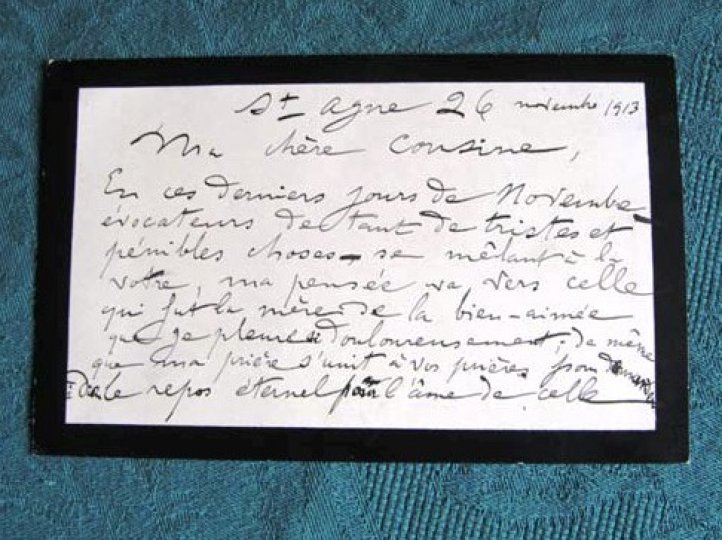 St Agne 26 novembre 1913
Ma chère Cousine,
En ces derniers jours de Novembre
évocateurs de tant de tristes et
pénibles choses, se mêlant à la
votre, ma pensée va vers celle
qui fut la mère de la bien-aimée
que je pleure si douloureusement; de même
que ma prière s'unit à vos prières pour demander
à Dieu le repos éternel pour l'âme de celle